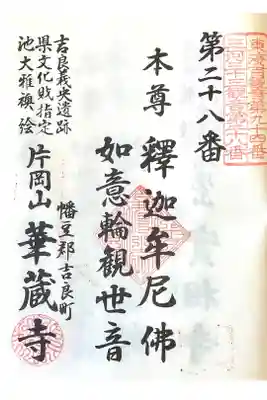 東海百観音第九十四番
三河三十三観音第二十八番
第二十八番
本尊 釋迦牟尼佛
如意輪觀世音
幡豆郡吉良町
片岡山 華蔵寺
吉良義央遺跡
県文化財指定
池大雅襖絵